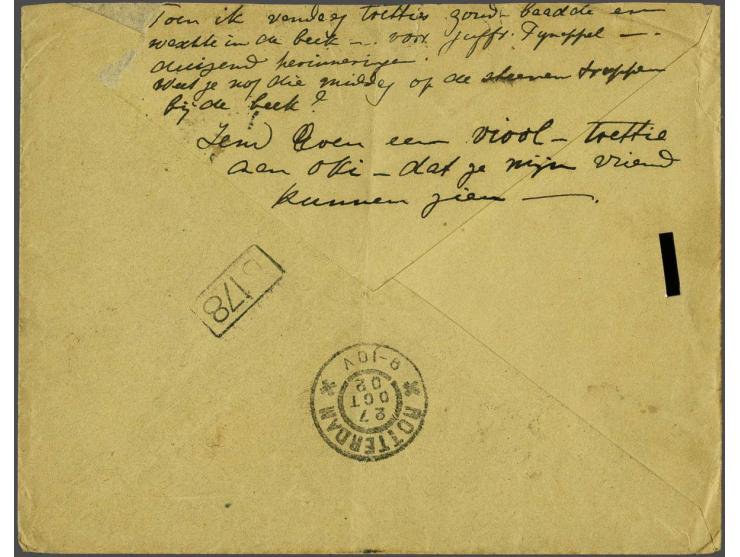 Toen ik vandaag trettie's zond baadde en
in de beek — voor Juffr. —
duizend herinneringen.
Weet je nog die middag op de steenen trappen
bij de beek?
Zend Coen een viool-trettie
aan Oki — dat ze mijn vriend
kunnen zien —.
178
ROTTERDAM
27
OCT
02
8-10V